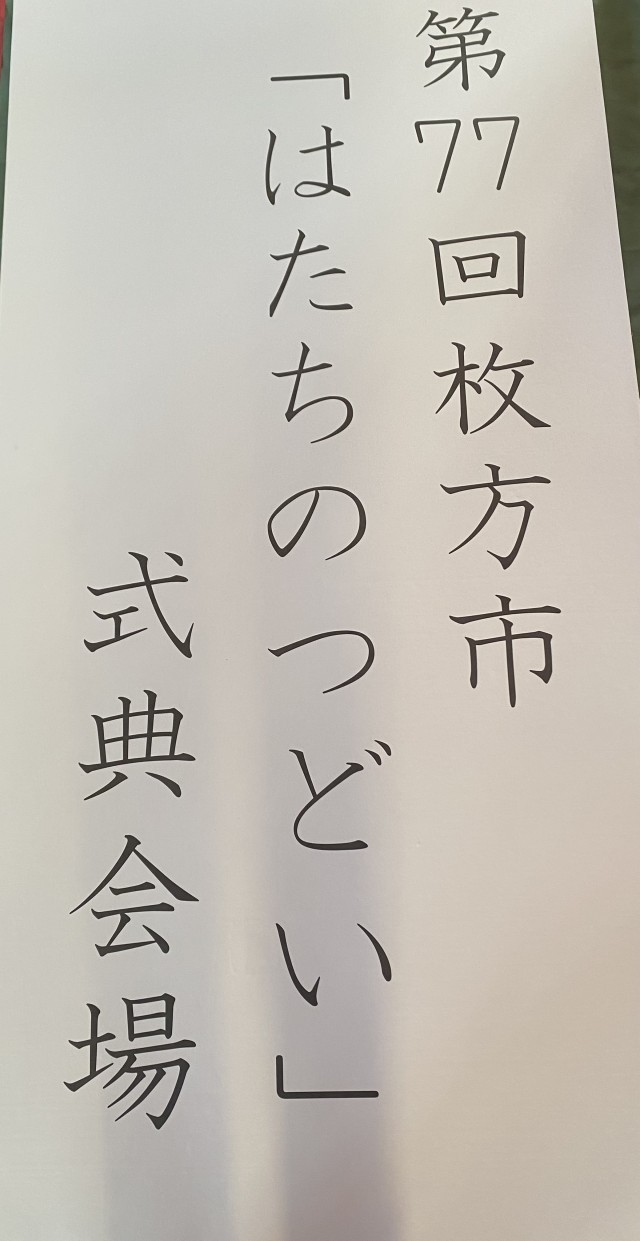 第77回枚方市
「はたちのつどい」
式典会場